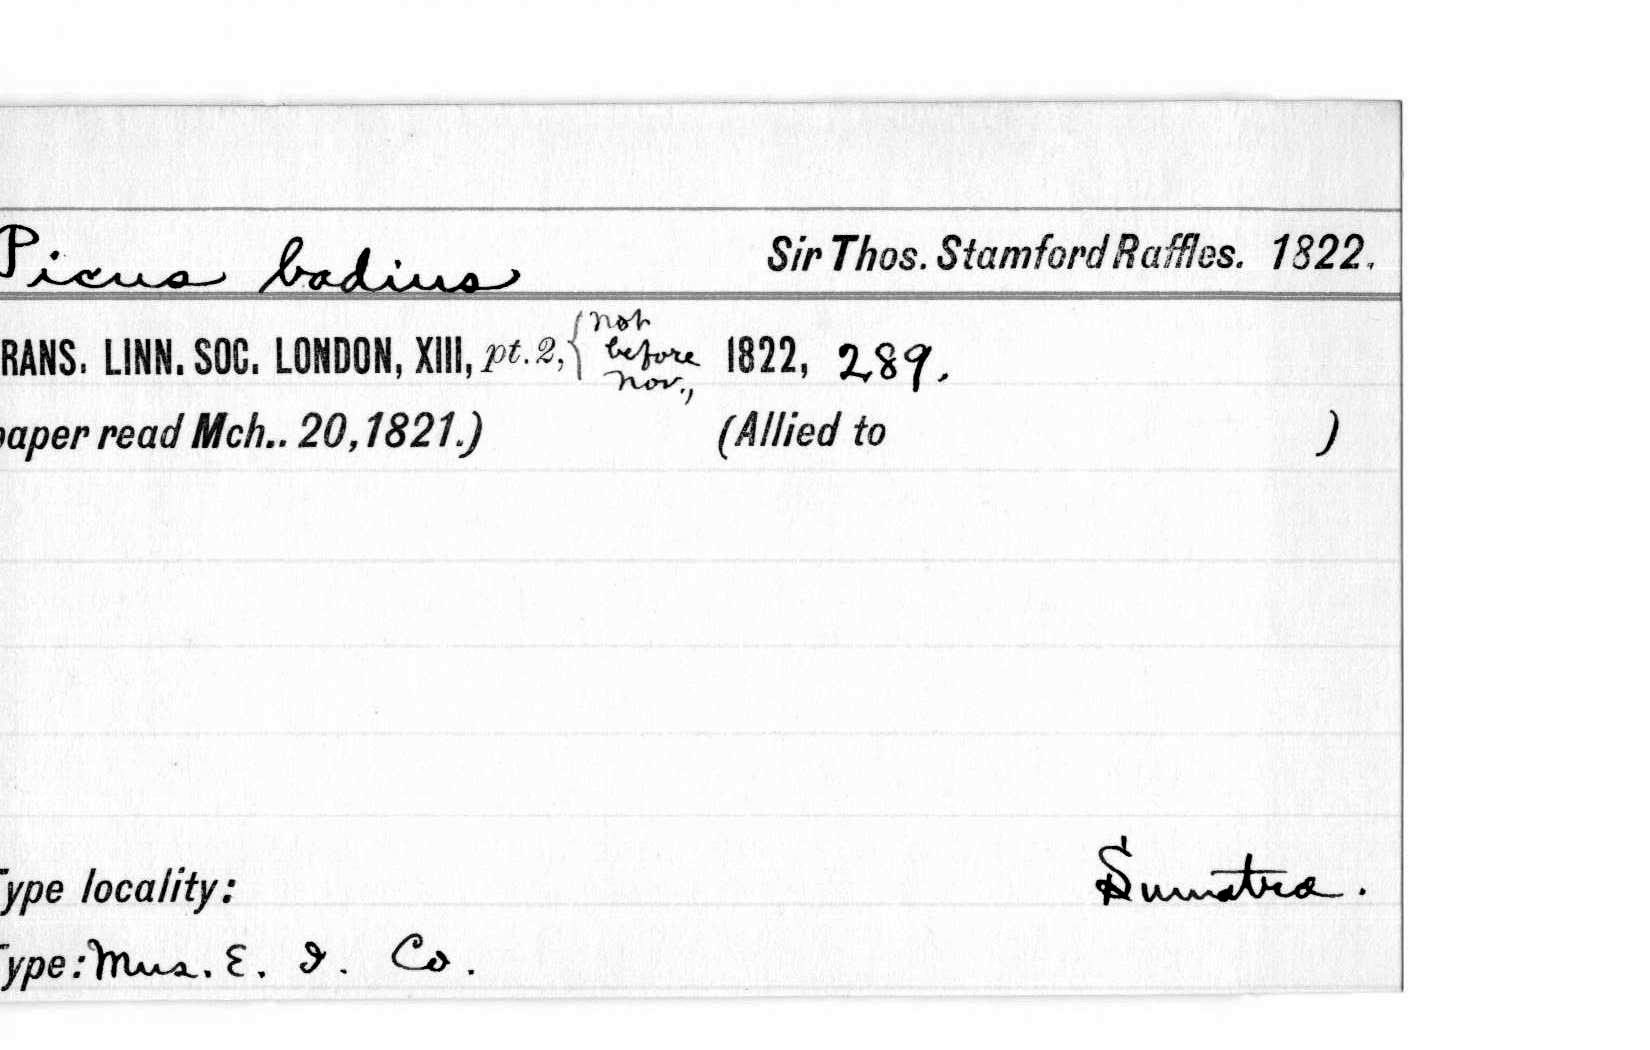 Picus badius Sir Thos. Stamford Raffles. 1822.
RANS. LINN. SOC. LONDON, XIII, pt. 2, { not before Nov., 1822, 289.
paper read Mch.. 20, 1821.) (Allied to )
Type locality: Sumatra.
Type: Mus. E. I. Co.